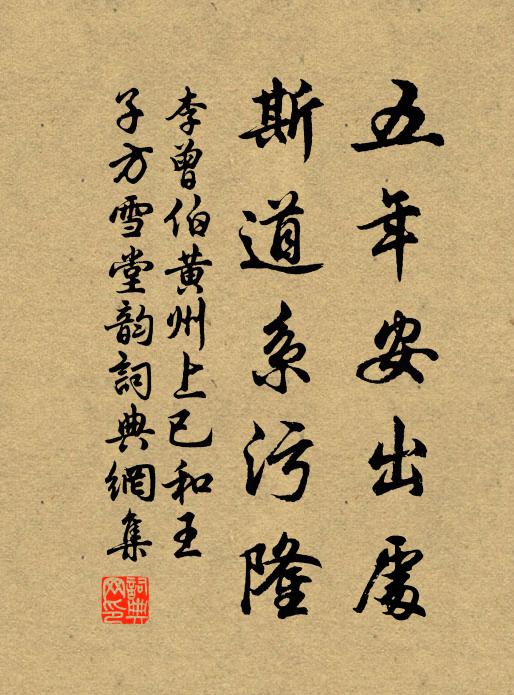 五年安出處
斯道系污隆
李曾伯黃州上巳和王
子方雪堂韵詞典網集
詞典網印